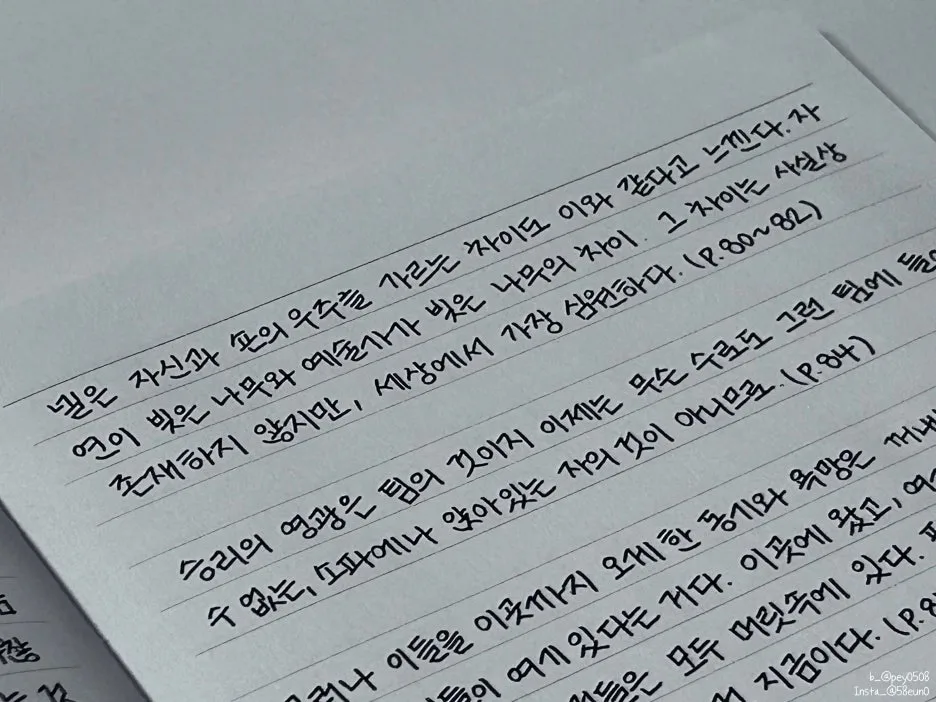 닐은 자신과 숀의 우주를 가르는 차이도 이와 같다고 느낀다. 자
연이 빚은 나무와 예술가가 빚은 나무의 차이. 그 차이는 사실상
존재하지 않지만, 세상에서 가장 심원하다. (P.80~82)
승리의 영광은 팀의 것이지 이제는 무슨 수로도 그런 팀에
수 없는, 소파에나 앉아있는 자의 것이 아니므로. (P.84)
이들을 이곳까지 오게 한 동기와 욕망은
여기 있다는 거다. 이곳에 왔고,
모두 머릿속에 있다.
지금이다. (P.
b_@pey0508
Insta_@58eun0